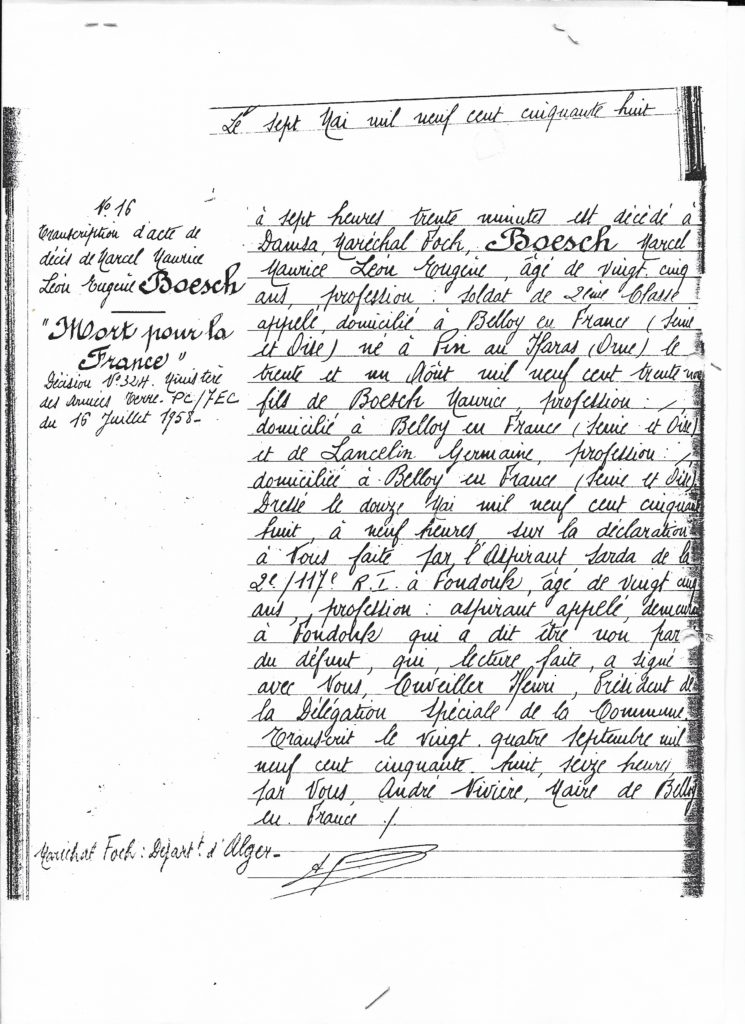 Le sept Mai mil neuf cent cinquante huit
N° 16
Transcription d'acte de
décès de Marcel Maurice
Léon Eugène Boesch
"Mort pour la
France"
Décision N° 324. Ministère
des Armées Terre. PC/7EC
du 16 Juillet 1958-
à sept heures trente minutes est décédé à
Damsa, Maréchal Foch, Boesch Marcel
Maurice Léon Eugène, âgé de vingt cinq
ans, profession : soldat de 2eme Classe
appelé, domicilié à Belloy en France (Seine
et Oise) né à Pin au Haras (Orne) le
trente et un Août mil neuf cent trente
fils de Boesch Maurice, profession :
domicilié à Belloy en France (Seine et Oise)
et de Lancelin Germaine, profession :
domiciliée à Belloy en France (Seine et Oise)
Dressé le douze Mai mil neuf cent cinquante
huit, à neuf heures sur la déclaration
à Nous faite par l'Aspirant Sarda de la
2e/117e R.I. à Fondouk, âgé de vingt cinq
ans, profession : aspirant appelé, demeurant
à Fondouk qui a dit être non par
du défunt, qui, lecture faite, a signé
avec Nous, Cuveiller Henri, Président de
la Délégation Spéciale de la Commune.
Transcrit le vingt quatre septembre mil
neuf cent cinquante huit, seize heures
par Nous, André Rivière, Maire de Belloy
en France ./.
Maréchal Foch : Départt d'Alger-